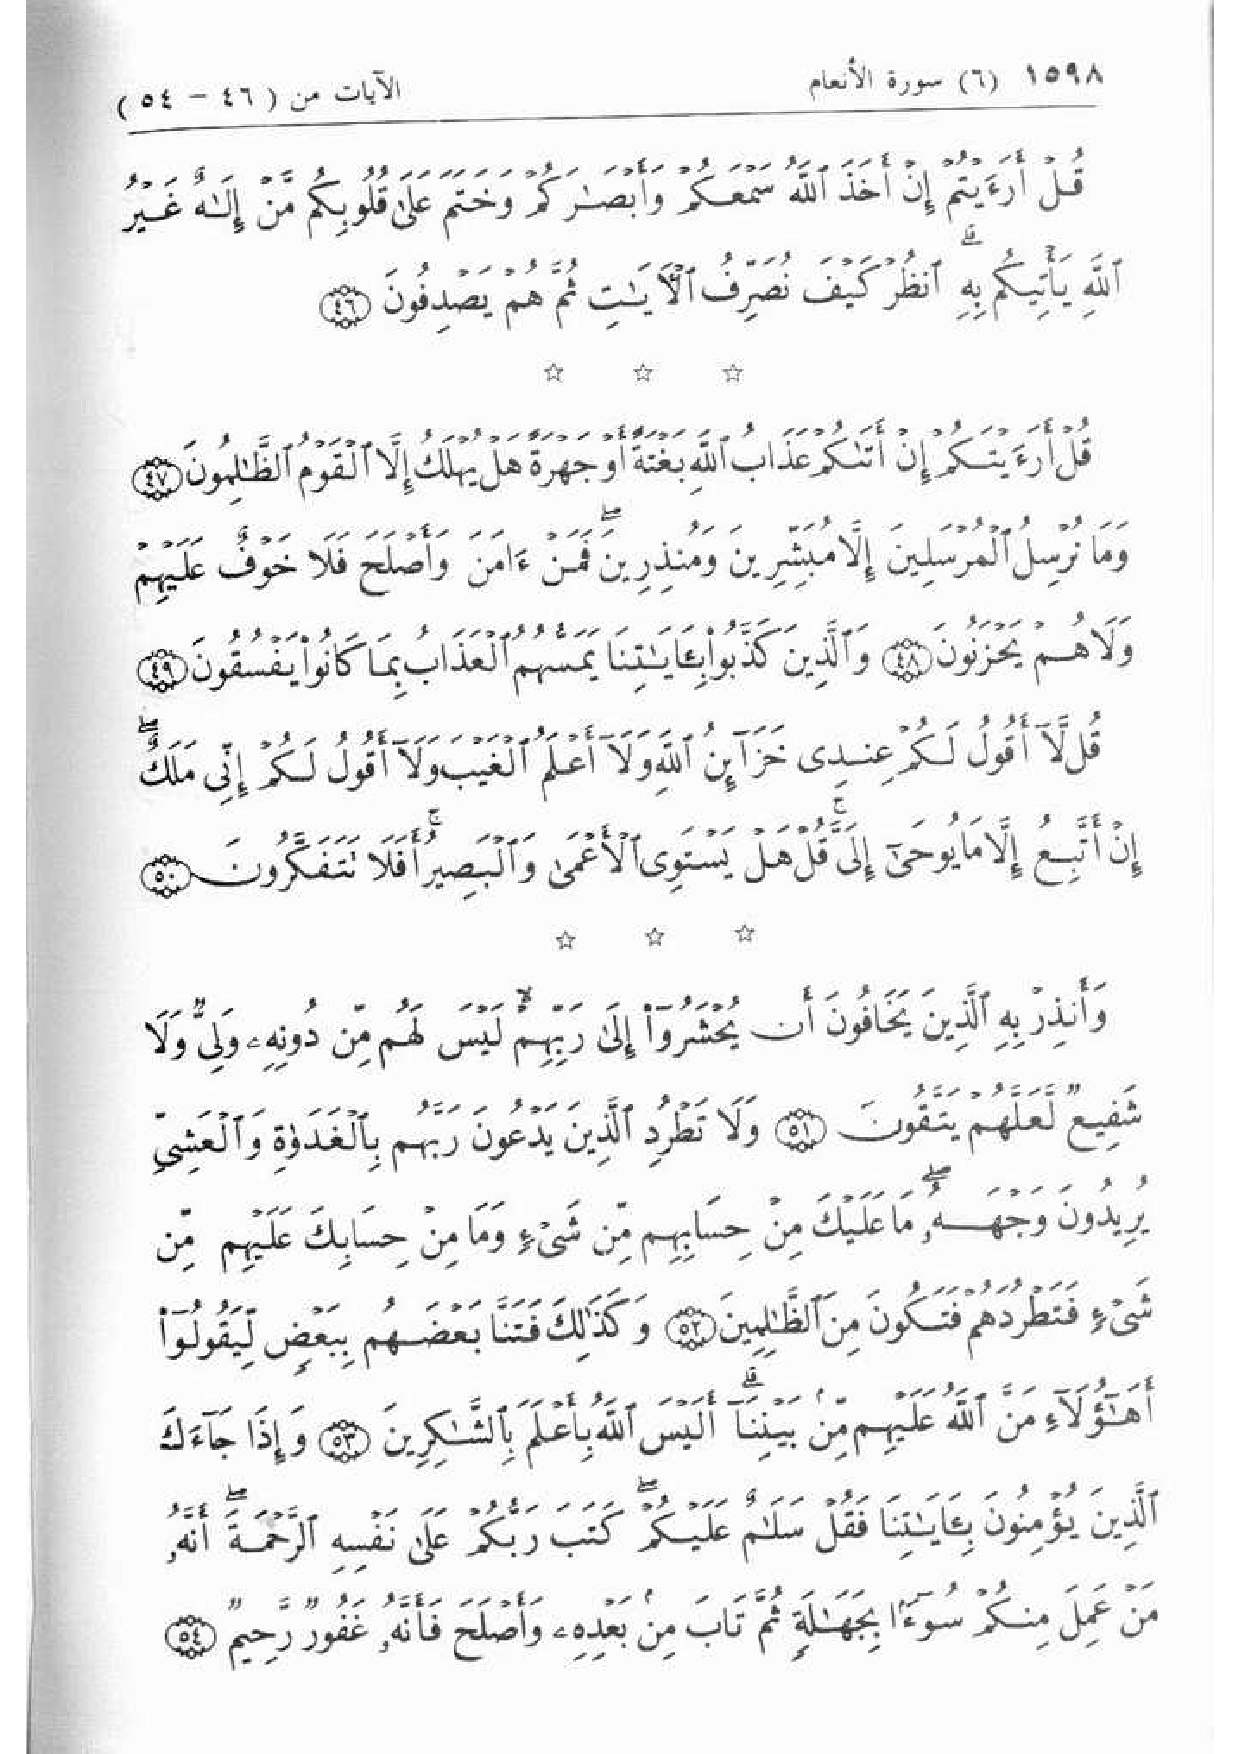 ١٥٩٨ (٦) سورة الأنعام الآيات من ( ٤٦ – ٥٤ )
قُلْ أَرَءَيْتُمْ إِنْ أَخَذَ ٱللَّهُ سَمْعَكُمْ وَأَبْصَٰرَكُمْ وَخَتَمَ عَلَىٰ قُلُوبِكُم مَّنْ إِلَٰهٌ غَيْرُ
ٱللَّهِ يَأْتِيكُم بِهِ ۗ ٱنظُرْ كَيْفَ نُصَرِّفُ ٱلْءَايَٰتِ ثُمَّ هُمْ يَصْدِفُونَ ﴿٤٦﴾
☆ ☆ ☆
قُلْ أَرَءَيْتَكُمْ إِنْ أَتَىٰكُمْ عَذَابُ ٱللَّهِ بَغْتَةً أَوْ جَهْرَةً هَلْ يُهْلَكُ إِلَّا ٱلْقَوْمُ ٱلظَّٰلِمُونَ ﴿٤٧﴾
وَمَا نُرْسِلُ ٱلْمُرْسَلِينَ إِلَّا مُبَشِّرِينَ وَمُنذِرِينَ ۖ فَمَنْ ءَامَنَ وَأَصْلَحَ فَلَا خَوْفٌ عَلَيْهِمْ
وَلَا هُمْ يَحْزَنُونَ ﴿٤٨﴾ وَٱلَّذِينَ كَذَّبُوا۟ بِـَٔايَٰتِنَا يَمَسُّهُمُ ٱلْعَذَابُ بِمَا كَانُوا۟ يَفْسُقُونَ ﴿٤٩﴾
قُل لَّآ أَقُولُ لَكُمْ عِندِى خَزَآئِنُ ٱللَّهِ وَلَآ أَعْلَمُ ٱلْغَيْبَ وَلَآ أَقُولُ لَكُمْ إِنِّى مَلَكٌ ۖ
إِنْ أَتَّبِعُ إِلَّا مَا يُوحَىٰٓ إِلَىَّ ۚ قُلْ هَلْ يَسْتَوِى ٱلْأَعْمَىٰ وَٱلْبَصِيرُ ۚ أَفَلَا تَتَفَكَّرُونَ ﴿٥٠﴾
☆ ☆ ☆
وَأَنذِرْ بِهِ ٱلَّذِينَ يَخَافُونَ أَن يُحْشَرُوٓا۟ إِلَىٰ رَبِّهِمْ ۙ لَيْسَ لَهُم مِّن دُونِهِۦ وَلِىٌّ وَلَا
شَفِيعٌ لَّعَلَّهُمْ يَتَّقُونَ ﴿٥١﴾ وَلَا تَطْرُدِ ٱلَّذِينَ يَدْعُونَ رَبَّهُم بِٱلْغَدَوٰةِ وَٱلْعَشِىِّ
يُرِيدُونَ وَجْهَهُۥ ۖ مَا عَلَيْكَ مِنْ حِسَابِهِم مِّن شَىْءٍ وَمَا مِنْ حِسَابِكَ عَلَيْهِم مِّن
شَىْءٍ فَتَطْرُدَهُمْ فَتَكُونَ مِنَ ٱلظَّٰلِمِينَ ﴿٥٢﴾ وَكَذَٰلِكَ فَتَنَّا بَعْضَهُم بِبَعْضٍ لِّيَقُولُوٓا۟
أَهَٰٓؤُلَآءِ مَنَّ ٱللَّهُ عَلَيْهِم مِّنۢ بَيْنِنَآ ۗ أَلَيْسَ ٱللَّهُ بِأَعْلَمَ بِٱلشَّٰكِرِينَ ﴿٥٣﴾ وَإِذَا جَآءَكَ
ٱلَّذِينَ يُؤْمِنُونَ بِـَٔايَٰتِنَا فَقُلْ سَلَٰمٌ عَلَيْكُمْ ۖ كَتَبَ رَبُّكُمْ عَلَىٰ نَفْسِهِ ٱلرَّحْمَةَ ۖ أَنَّهُۥ
مَنْ عَمِلَ مِنكُمْ سُوٓءًۢا بِجَهَٰلَةٍ ثُمَّ تَابَ مِنۢ بَعْدِهِۦ وَأَصْلَحَ فَأَنَّهُۥ غَفُورٌ رَّحِيمٌ ﴿٥٤﴾